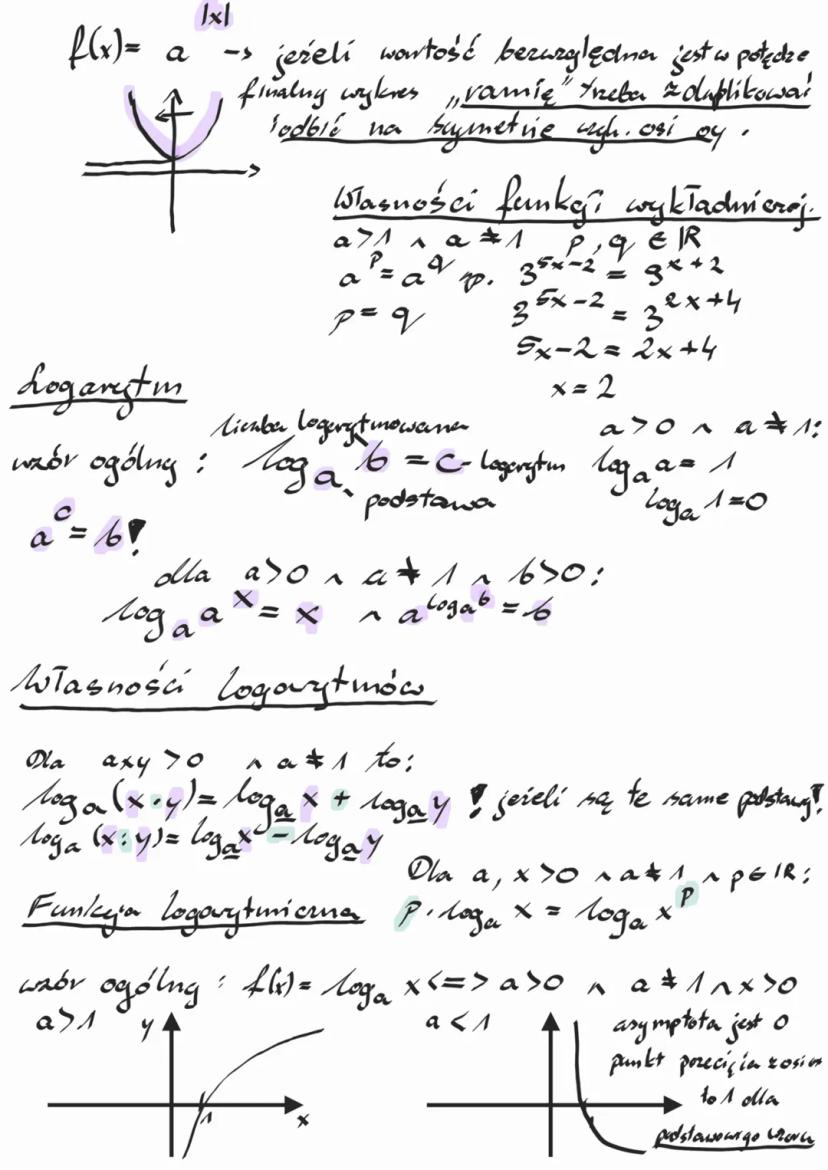 f(x)= a^|x| -> jeżeli wartość bezwzględna jest w potędze
finalny wykres „ramię" trzeba zduplikować
i odbić na symetrię wzgl. osi oy.
Własności funkcji wykładniczej.
a>1 ∧ a≠1 p, q ∈ IR
a^p = a^q np. 3^(5x-2) = 9^(x+2)
p = q 3^(5x-2) = 3^(2x+4)
5x-2 = 2x+4
x=2
Logarytm
liczba logarytmowana a>0 ∧ a≠1:
wzór ogólny: log_a b = c - logarytm log_a a = 1
podstawa log_a 1=0
a^c = b!
dla a>0 ∧ a≠1 ∧ b>0:
log_a a^x = x ∧ a^(log_a b) = b
Własności logarytmów
Dla axy >0 ∧ a≠1 to:
log_a (x·y)= log_a x + log_a y ! jeżeli są te same podstawy!
log_a (x:y)= log_a x - log_a y
Dla a, x>0 ∧ a≠1 ∧ p∈IR:
Funkcja logarytmiczna p·log_a x = log_a x^p
wzór ogólny: f(x)= log_a x <=> a>0 ∧ a≠1 ∧ x>0
a>1 y a<1 asymptota jest 0
punkt przecięcia z osią
1 x to 1 dla
podstawowego wzoru